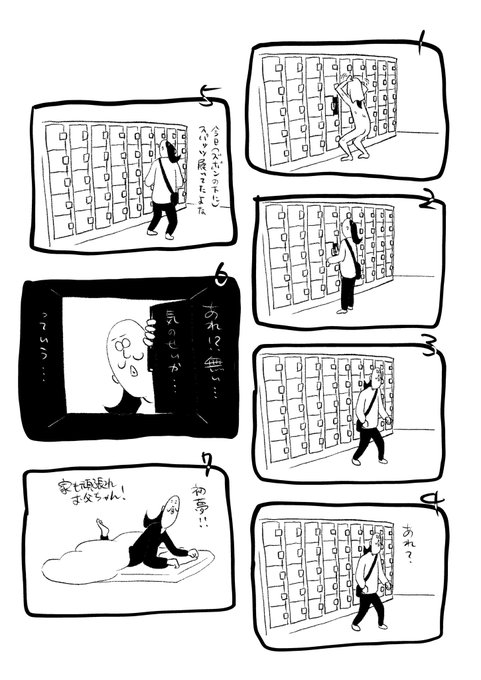 1
2
3
4
あれ?
5
今日(ズボンの下に)
スパッツ履いてたよな
6
あれ!?無い…
気のせいか…
っていう…
7
初夢!!
家も頑張れ
お父ちゃん!